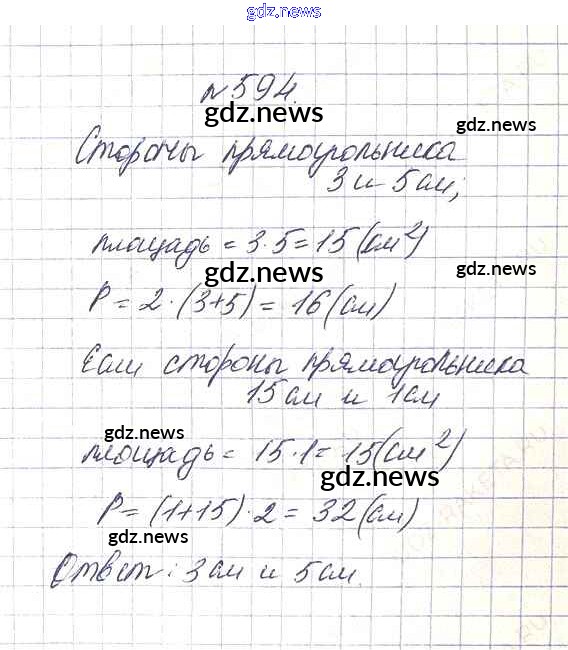 gdz.news
№594.
gdz.news
gdz.news
Стороны прямоугольника
3 и 5 см;
площадь = 3·5=15 (см²)
gdz.news
gdz.news
P = 2·(3+5) = 16 (см)
Если стороны прямоугольника
15 см и 1 см
gdz.news
площадь = 15·1=15(см²)
gdz.news
P = (1+15)·2 = 32 (см)
gdz.news
Ответ: 3 см и 5 см.